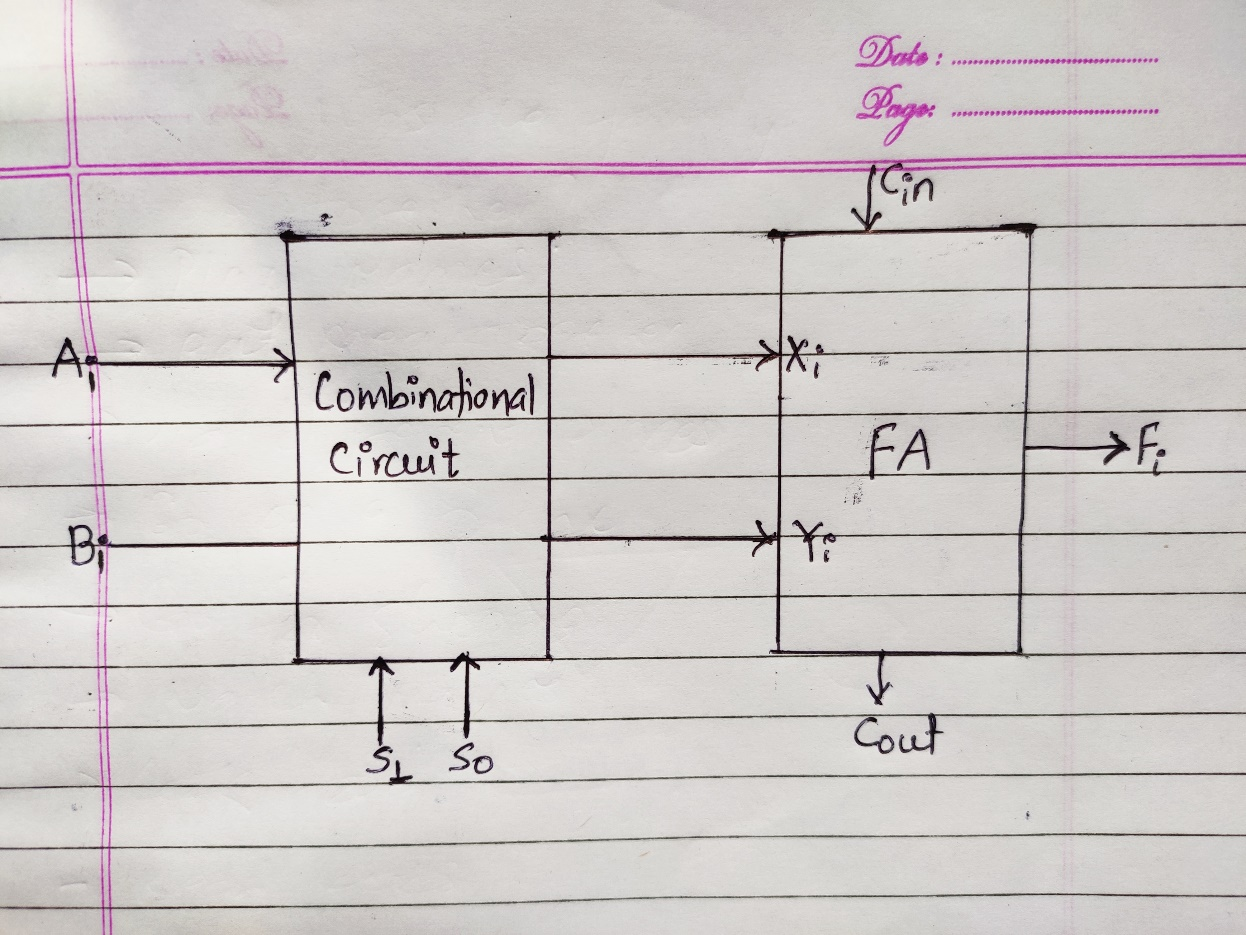 Date :
Page:
Cin
Ai
Xi
Combinational
Circuit
FA
Fi
Bi
Yi
S1 S0
Cout